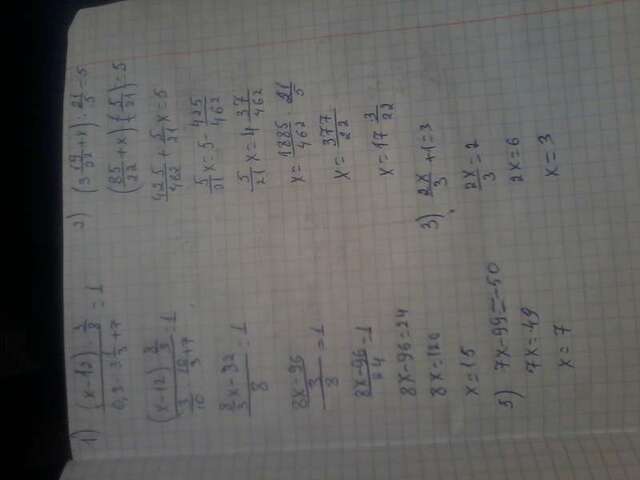 1) (x-12) · 8/3 / 0,3 · 3 1/3 + 7 = 1
(x-12) 8/3 / 3/10 · 10/3 + 7 = 1
8/3 x - 32 / 8 = 1
8x-96 / 3 / 8 = 1
8x-96 / 24 = 1
8x-96=24
8x=120
x=15
5) 7x-99=-50
7x=49
x=7
2) (3 19/22 + x) : 21/5 = 5
(85/22 + x) · (5/21) = 5
425/462 + 5/21 x = 5
5/21 x = 5 - 425/462
5/21 x = 4 37/462
x = 1885/462 · 21/5
x = 377/22
x = 17 3/22
3) 2x/3 + 1 = 3
2x/3 = 2
2x=6
x=3